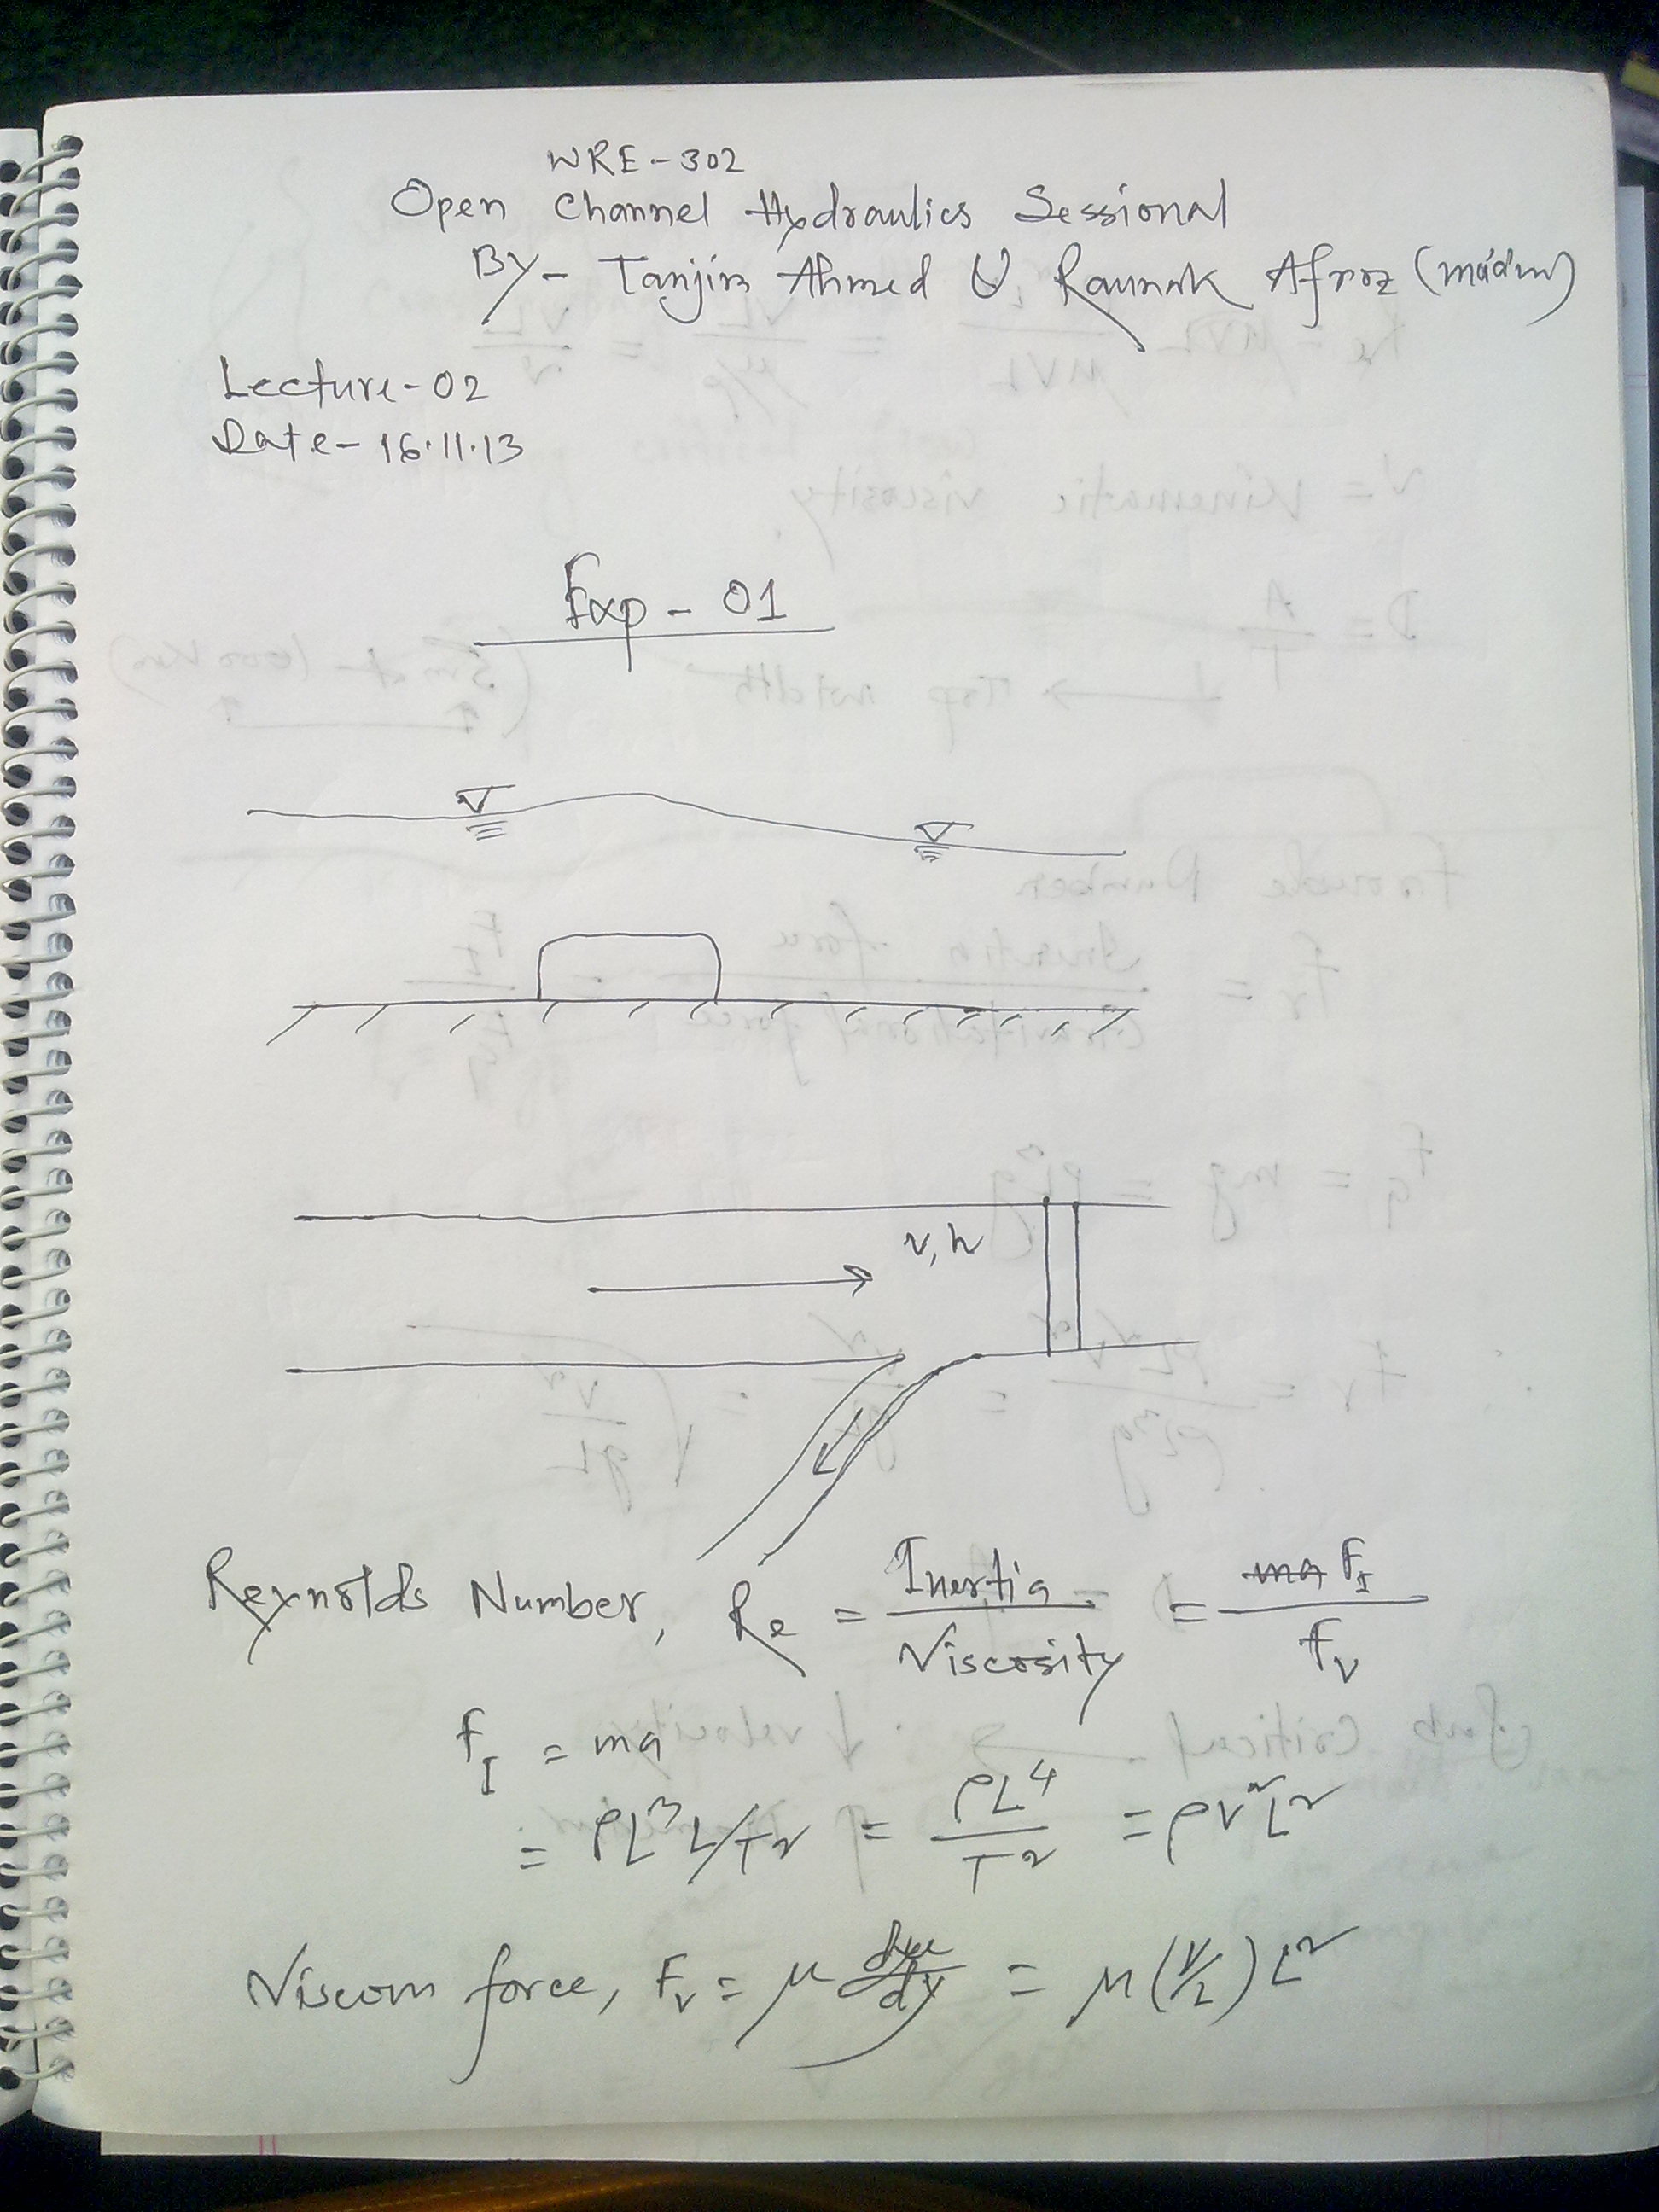 WRE-302
Open Channel Hydraulics Sessional
By- Tanjir Ahmed & Raunak Afroz (madam)
Lecture-02
Date- 16.11.13
Exp - 01
v, h
Reynolds Number, Re = Inertia / Viscosity = ma F_I / F_V
F_I = ma
= ρL³L/T² = ρL⁴/T² = ρV²L²
Viscous force, F_V = μ du/dy = μ(V/L)L²